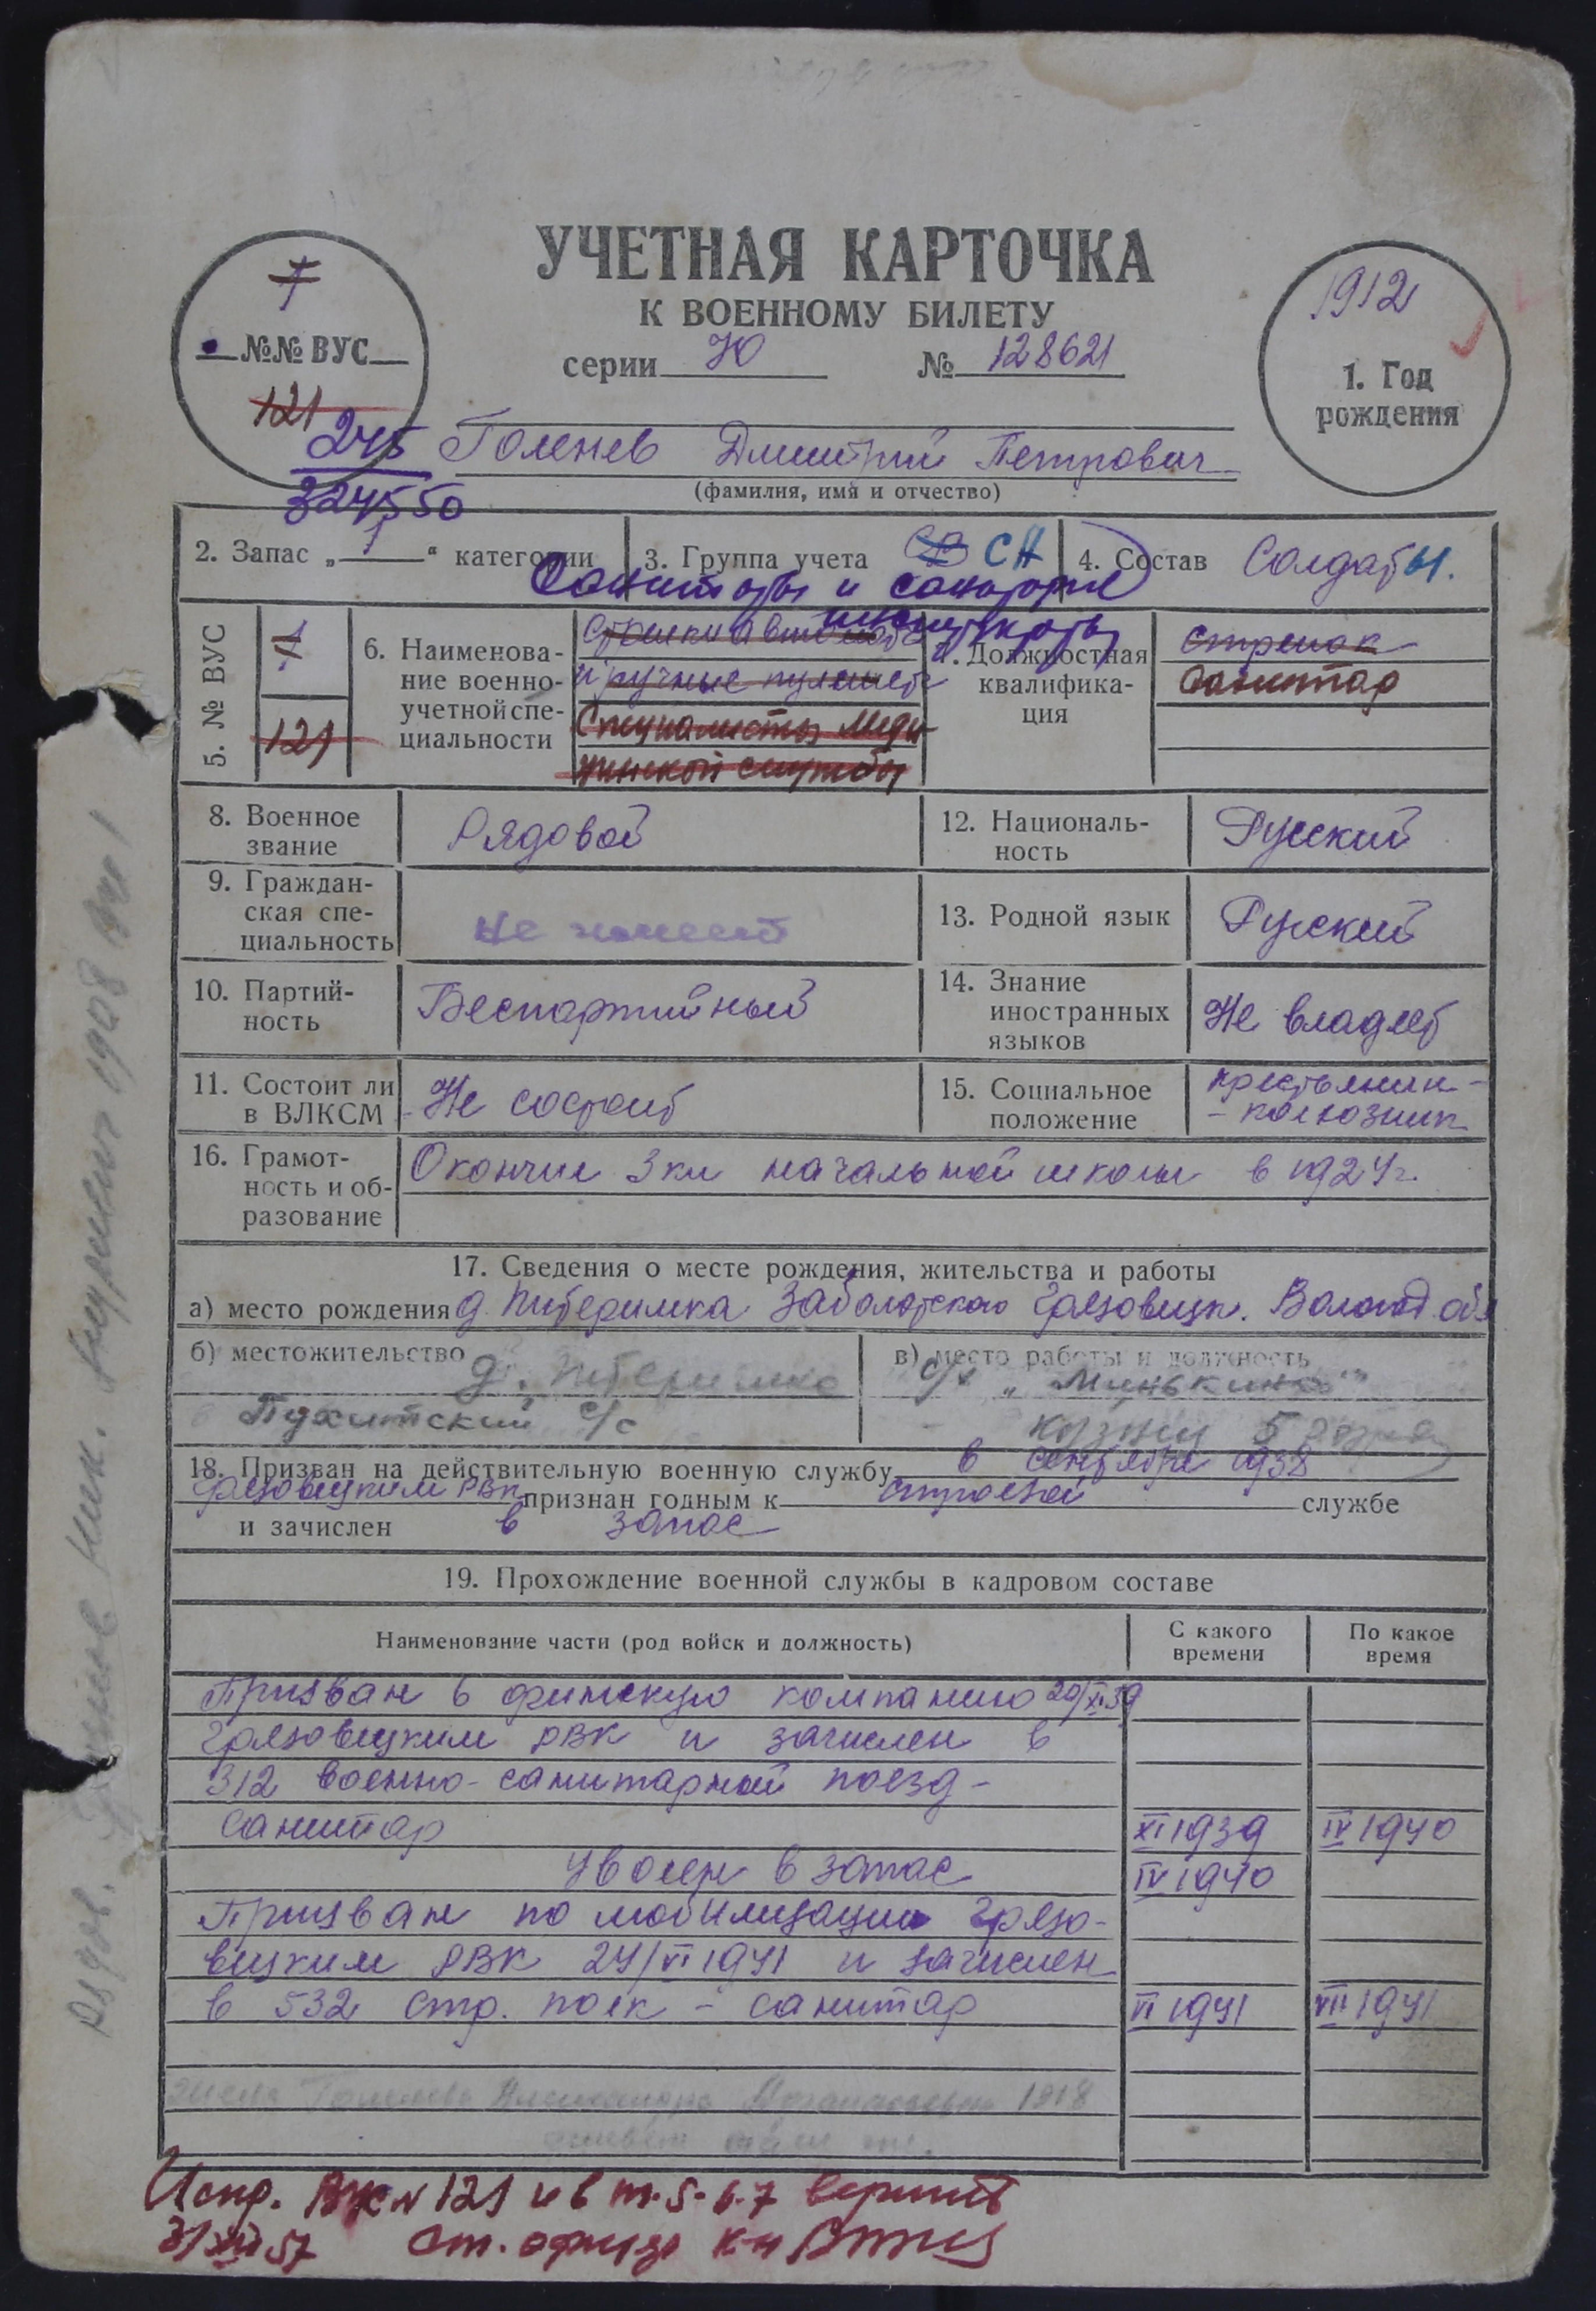 УЧЕТНАЯ КАРТОЧКА
К ВОЕННОМУ БИЛЕТУ
серии Ю № 128621
1
№№ ВУС
121
245
324550
1912
1. Год
рождения
Голенев Дмитрий Петрович
(фамилия, имя и отчество)
2. Запас „1“ категории
3. Группа учета СА
4. Состав Солдаты.
Санитары и санитары
инструкторы
5. № ВУС 1
121
6. Наименова-
ние военно-
учетной спе-
циальности
Стрелки автомат
и ручные пулемет
Специалисты меди-
цинской службы
7. Должностная
квалифика-
ция
Стрелок
Санитар
8. Военное
звание
Рядовой
12. Националь-
ность
Русский
9. Граждан-
ская спе-
циальность
Не имеет
13. Родной язык
Русский
10. Партий-
ность
Беспартийный
14. Знание
иностранных
языков
Не владеет
11. Состоит ли
в ВЛКСМ
Не состоит
15. Социальное
положение
крестьянин-
- колхозник
16. Грамот-
ность и об-
разование
Окончил 3 кл начальной школы в 1924 г.
17. Сведения о месте рождения, жительства и работы
а) место рождения д. Заболотского Грязовецк. Вологод. обл
б) местожительство д.
с/с
в) место работы и должность
с/х „Минькино“
18. Призван на действительную военную службу в сентябре 1938
Грязовецким РВК признан годным к строевой службе
и зачислен в запас
19. Прохождение военной службы в кадровом составе
Наименование части (род войск и должность)
С какого
времени
По какое
время
Призван в финскую компанию 20/XI 39
Грязовецким РВК и зачислен в
312 военно-санитарный поезд -
санитар XI 1939 IV 1940
Уволен в запас IV 1940
Призван по мобилизации Грязо-
вецким РВК 24/VI 1941 и зачислен
в 532 стр. полк - санитар VI 1941 VII 1941
жена Александра 1918
Испр. ВУС N 121 и в п. 5-6-7 верить
31/XII 57 Ст. офицер к-н